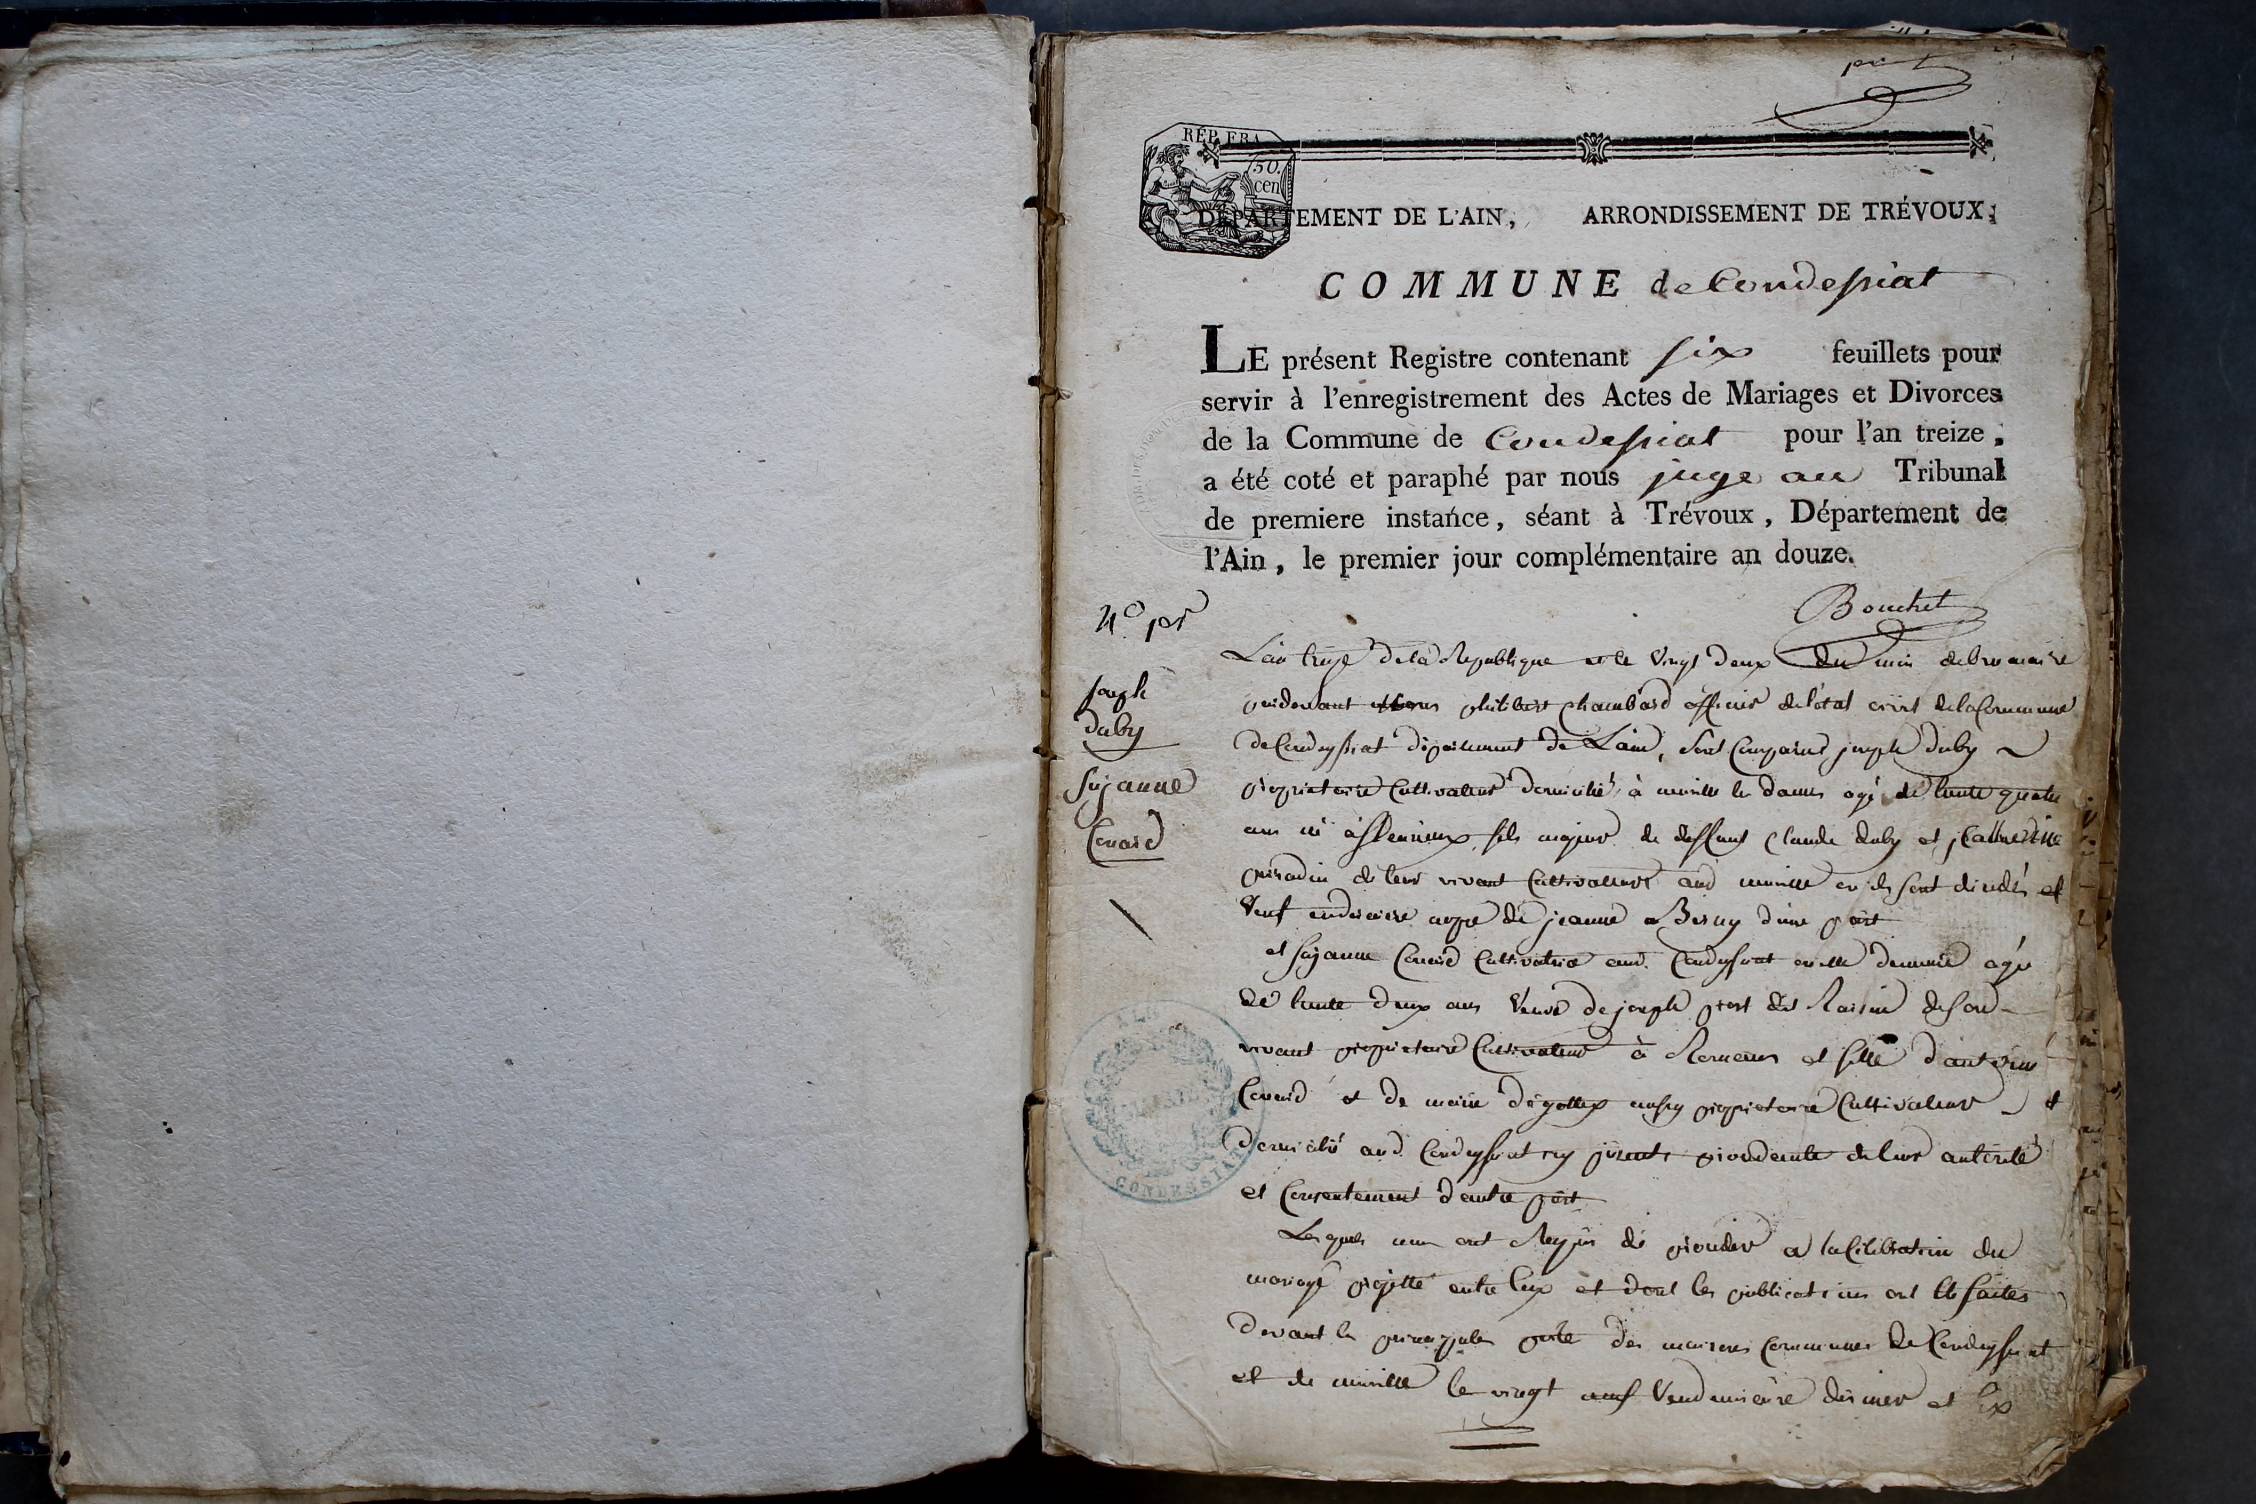 RÉP. FRA
50.
cen
DÉPARTEMENT DE L'AIN, ARRONDISSEMENT DE TRÉVOUX,
COMMUNE de Condessiat
LE présent Registre contenant six feuillets pour
servir à l'enregistrement des Actes de Mariages et Divorces
de la Commune de Condessiat pour l'an treize,
a été coté et paraphé par nous juge au Tribunal
de premiere instance, séant à Trévoux, Département de
l'Ain, le premier jour complémentaire an douze.
Bouchet
N.o per
joseph
duby
Suzanne
Cenard
L'an treize de la Republique et le vingt deux du mois de brumaire
pardevant nous philibert chambard officier de l'état civil de la Commune
de Condeyssiat département de Lain, sont Comparus joseph duby
propriétaire Cultivateur domicilié à neuville les dames agé de trente quatre
ans né à fils majeur de deffunt Claude duby et Catherine
de leur vivant Cultivateurs aud neuville ou ils sont dicédés et
Veuf en derniere de jeanne Berny d'une part
et Suzanne Cenard Cultivatrice aud. Condeyssiat ou elle demeure agée
de trente deux ans Veuve de joseph dit Raisin de son
vivant propriétaire Cultivateur à Romans et fille d'antoine
Cenard et de marie aussy propriétaire Cultivateur et
domicilié aud. Condeyssiat cy présents de leur autorité
et Consentement d'autre part
Lesquels nous ont Requis de procéder a la Célébration du
mariage projetté entre Eux et dont les publications ont été faites
devant la principale porte des maisons Communes de Condeyssiat
et de neuville le vingt neuf Vendemiaire dernier et six
MAIRIE
CONDESSIAT
AIN